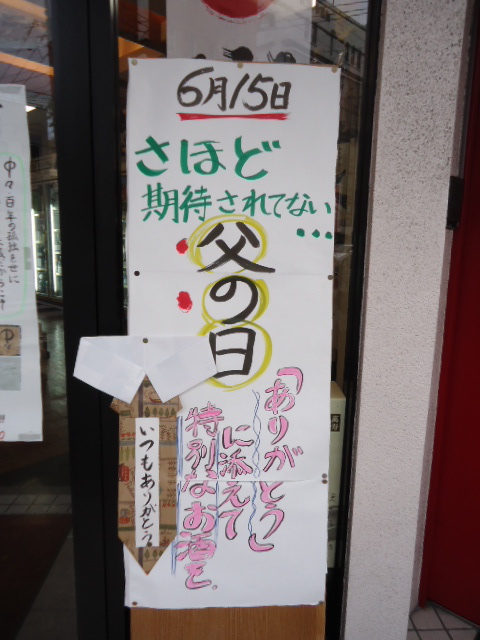 6月15日
さほど
期待されてない
...
父の日
「ありがとう」
に添えて
特別なお酒を.
いつもありがとう。